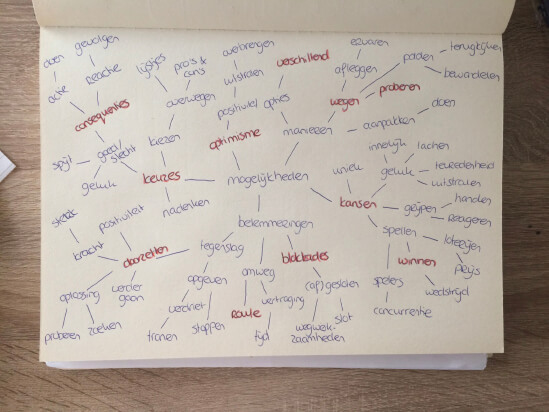 overbrengen
verschillend
ervaren
doen
gevolgen
lijstjes
pro's &
cons
uitstralen
afleggen
paden
terugkijken
bewandelen
actie
reactie
overwegen
positiviteit
opties
wegen
proberen
doen
consequenties
kiezen
optimisme
manieren
aanpakken
innerlijk
lachen
spijt
goed/
slecht
uniek
geluk
tevredenheid
uitstralen
geluk
keuzes
mogelijkheden
handen
kansen
grijpen
reageren
sterk
positiviteit
nadenken
belemmeringen
spellen
kracht
doorzetten
tegenslag
blokkades
winnen
prijs
oplossing
verder
gaan
opgeven
omweg
(af)gesloten
spelers
wedstrijd
verdriet
Route
vertraging
slot
concurrentie
proberen
zoeken
tranen
stoppen
tijd
wegwerk-
zaamheden